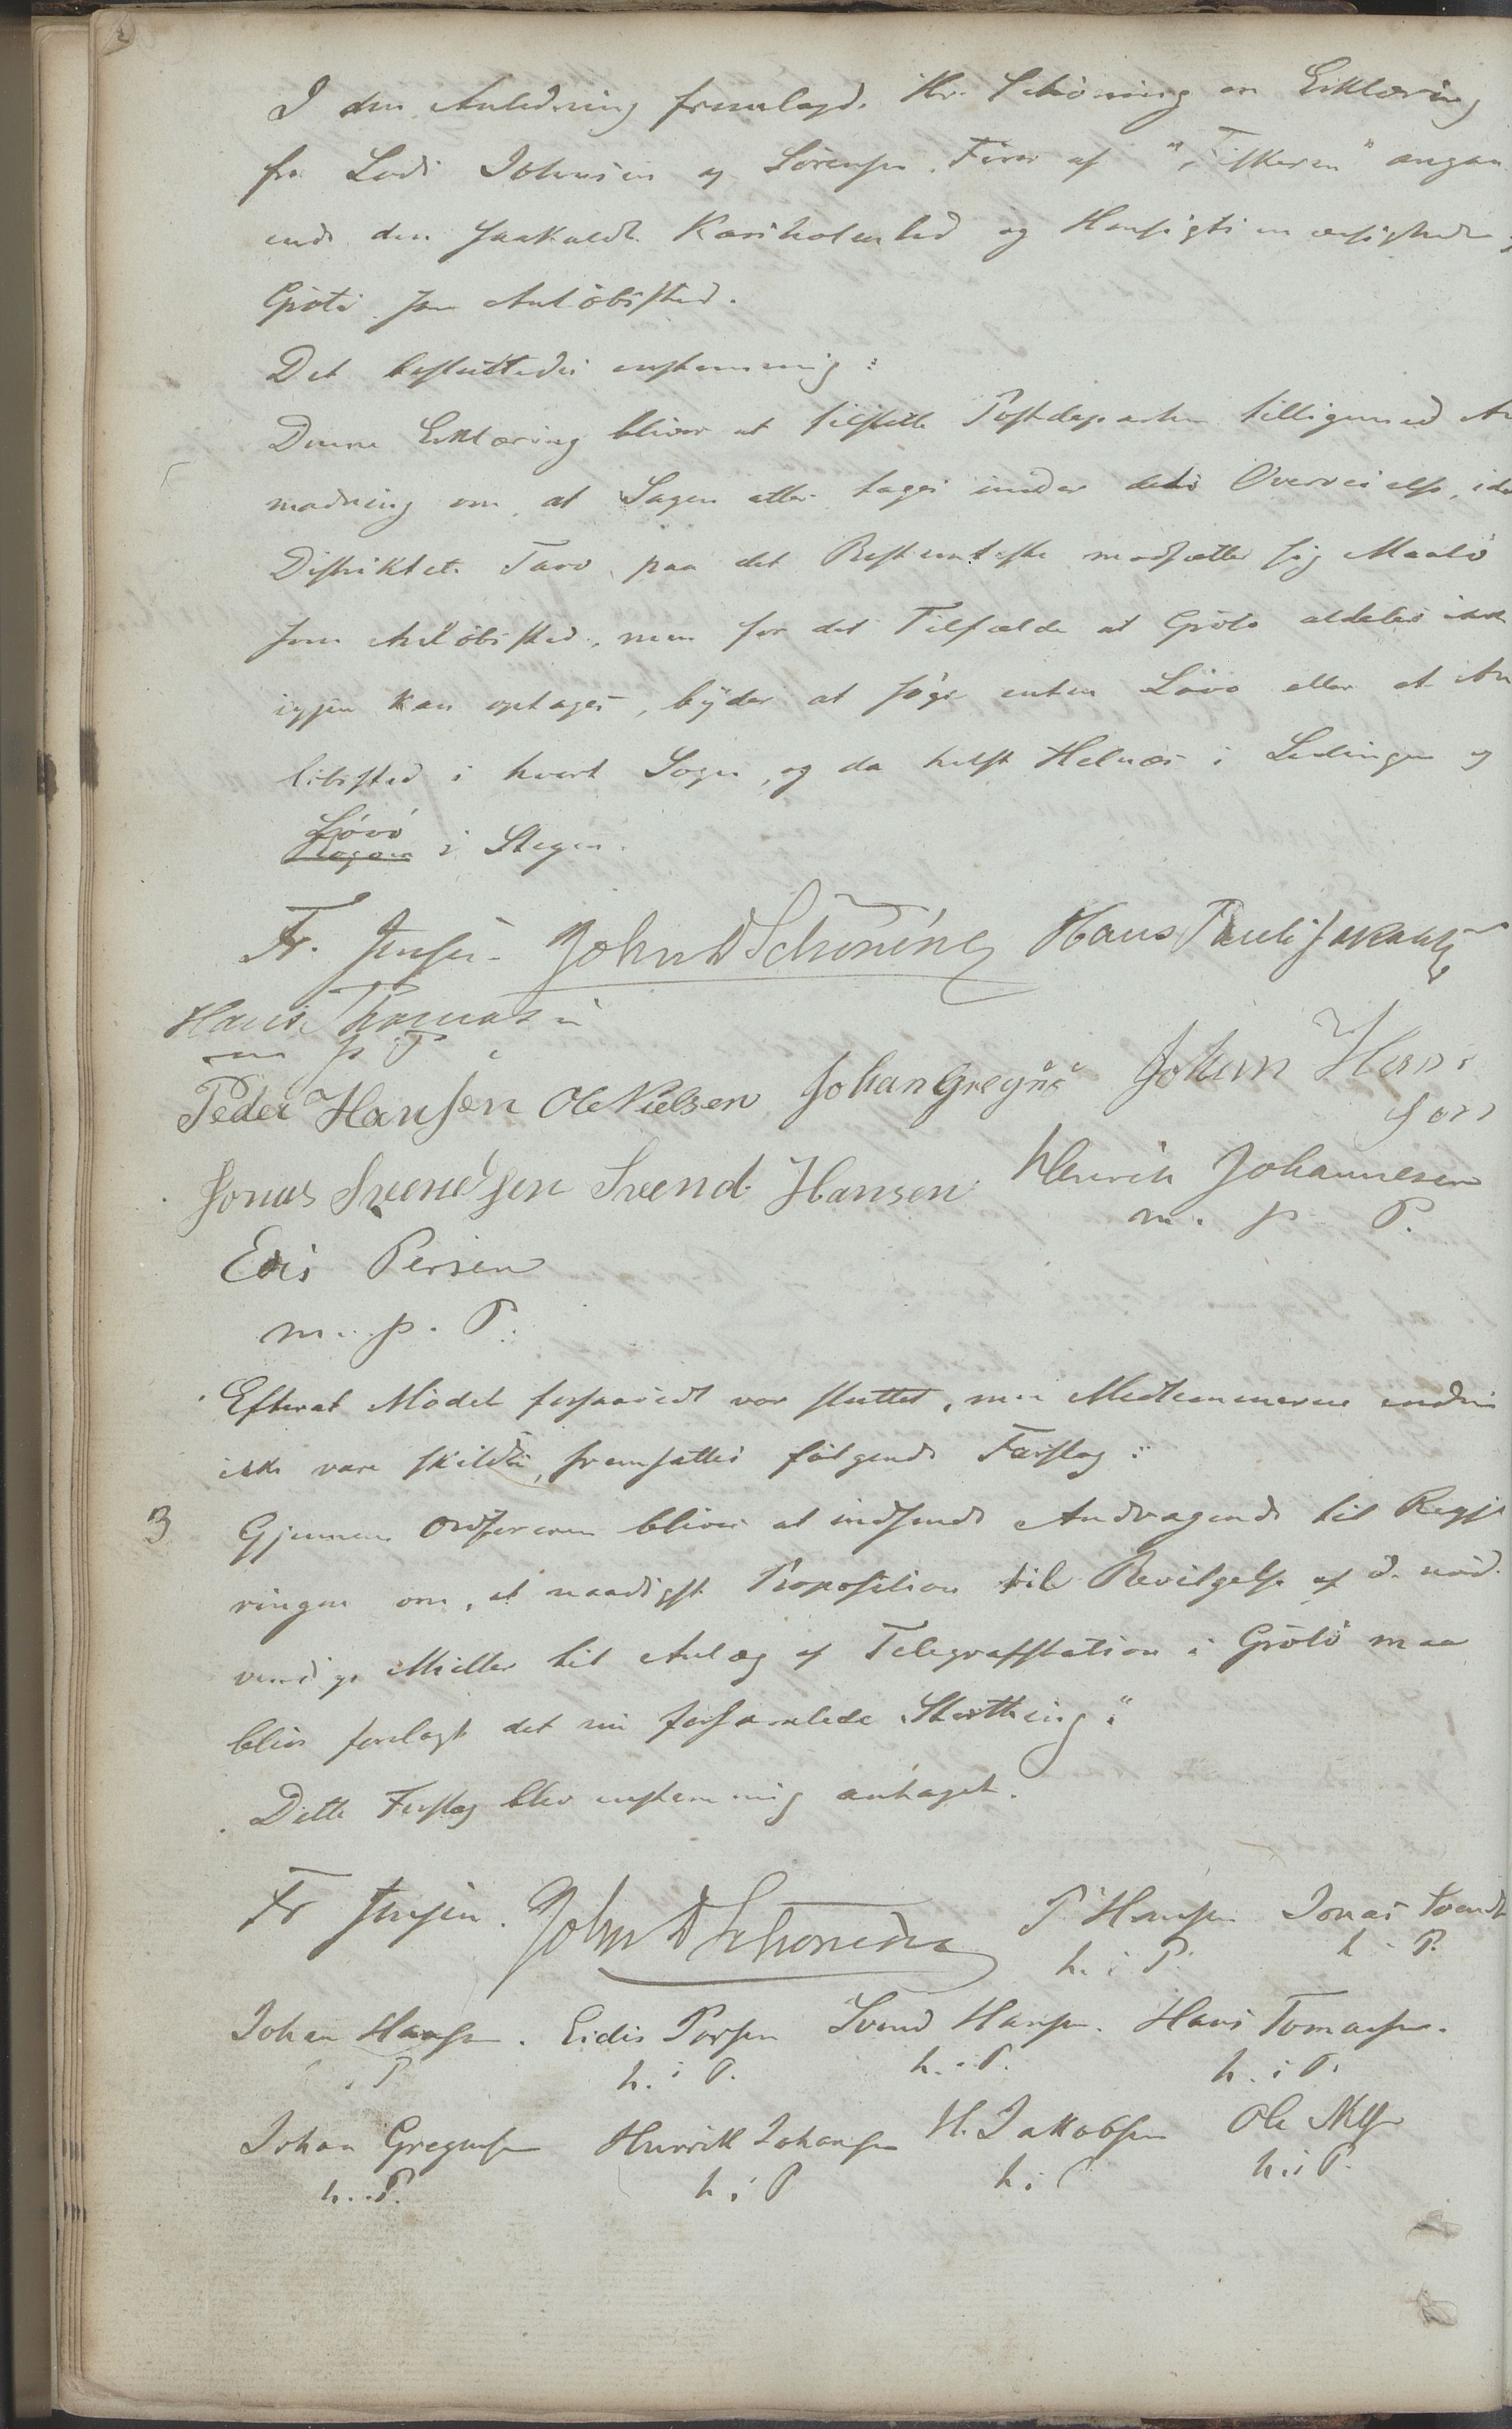 2
I den Anledning fremlagde Hr. Schöning en Erklæring
fra Lods Johnsen og Sörensen, Förer af "Fiskeren" angaa
ende den saakaldte Kariholmled og Hensigtsmæssigheden
Grötö som Anlöbssted.
Det besluttedes enstemmig:
Denne Erklæring bliver at tilstille Postdeparten tilligemed An
modning om, at Sagen atter tages under dets Overveielse, idet
Distriktets Tarv paa det Bestemteste modsætter sig Maalö
som Anlöbssted, men for det Tilfælde at Grötö aldeles ikke
igjen kan optages, byder at söge enten Lövö eller et An
löbssted i hvert Sogn, og da helst Helnæs i Ledingen og
Lövö
i Stegen.
Fr. Jensen John D Schöning Hans Pauli Jakobs
Hans Thomas
m p P
Peder Hansen Ole Nielsen Johan Gregus Johan Hans
sen
Jonas Svendsen Svend Hansen Henrik Johannesen
m. p P.
Edis Persen
m. p. P.
Efterat Mödet forsaavidt var sluttet, men Medlemmerne endnu
ikke vare skildte, fremsattes fölgende Forslag:
3 Gjennem Ordföreren bliver at indsende Andragende til Regje
ringen om, at naadigst Proposition til Bevilgelse af de nöd
vendige Midler til Anlæg af Telegrafstation i Grötö maa
blive forelagt det nu forsamlede Storthing."
Dette Forslag blev enstemmig antaget.
Fr Jensen. John D Schöning P. Hansen Jonas Svends
h. i P. h. i P.
Johan Hansen. Eidis Persen Svend Hansen. Hans Tomassen.
i P h. i P. h. i P. h. i P.
Johan Gregusen Henrik Johansen H. Jakobsen Ole Nils
h. i P. h. i P h. i h. i P.